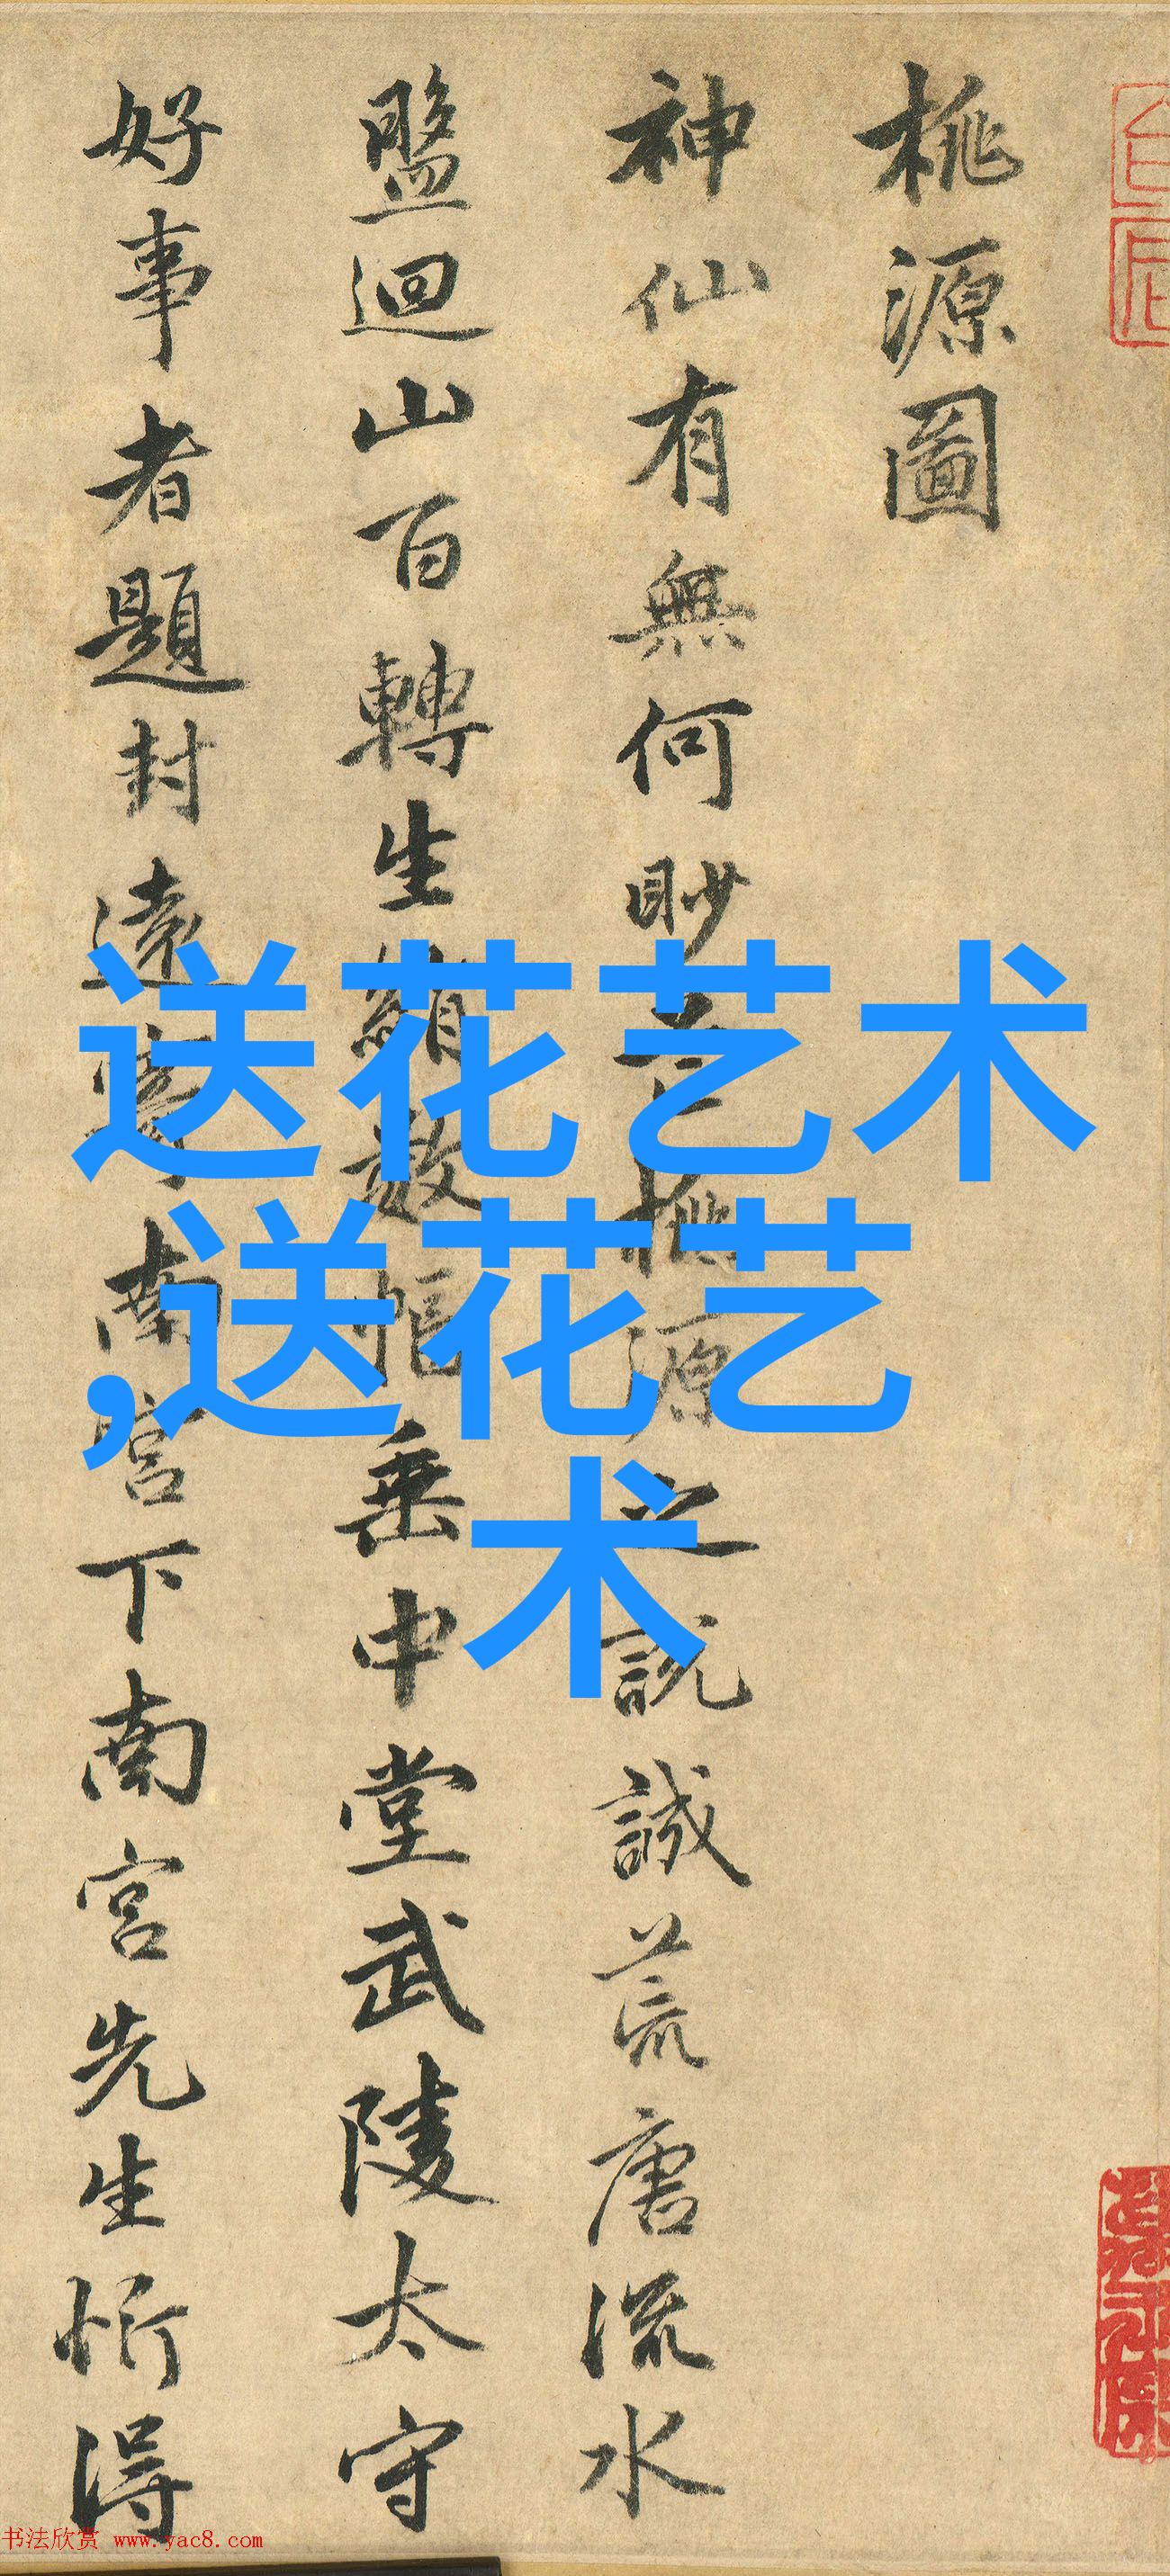 桃源圖
神仙有無何眇芒桃源之說誠荒唐流水
盤迴山百轉生綃數幅垂中堂武陵太守
好事者題封遠寄南宮下南宮先生忻得
送花艺术
,送花艺
术
书法欣赏 www.yac8.com